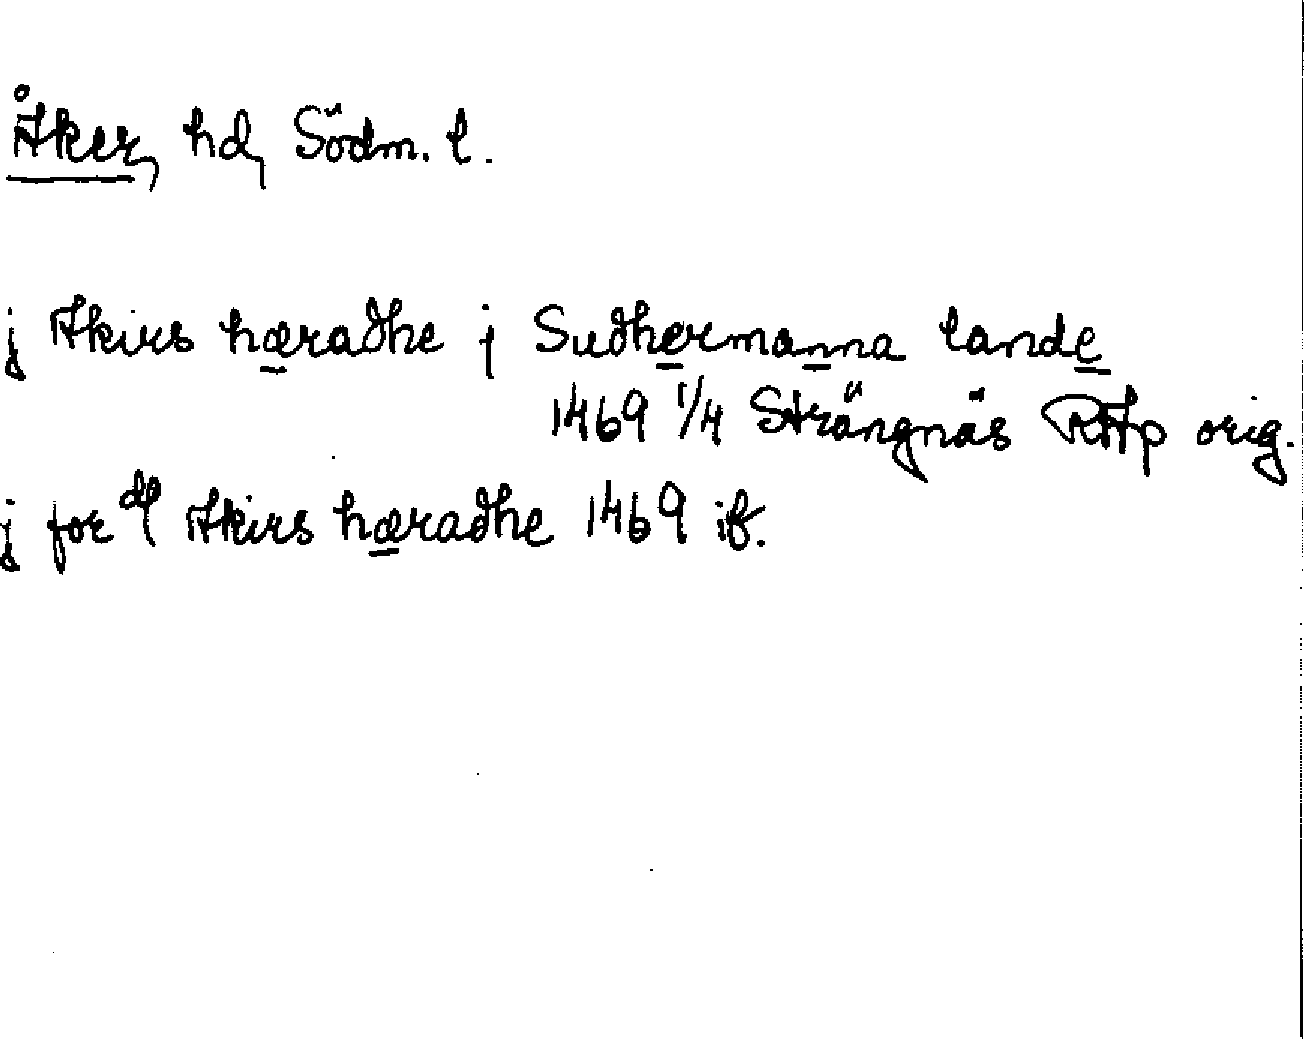 Åker, hd, Södm. l.
j Akirs hæradhe j Sudhermanna lande
1469 1/4 Strängnäs RAp orig.
j for d Akirs hæradhe 1469 ib.